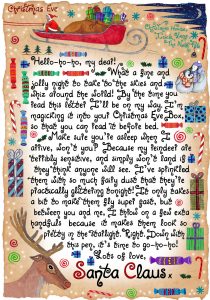 Christmas Eve
Christmas House
"Hello-ho-ho, my dear!
What a fine and
jolly night to take to the skies and
whizz around the world! By the time you
read this letter I'll be on my way. I'm
magicking it into your Christmas Eve Box,
so that you can read it before bed.
Make sure you're asleep when I
arrive, won't you? Because my reindeer are
terribly sensitive, and simply won't land if
they think anyone will see. I've sprinkled
them with so much fairy dust that they're
practically glittering tonight! It only takes
a bit to make them fly super fast, but
between you and me, I throw on a few extra
handfuls because it makes them look so
pretty in the starlight. Right. Down with
this pen, it's time to go-ho-ho!
Lots of love,
Santa Claus x